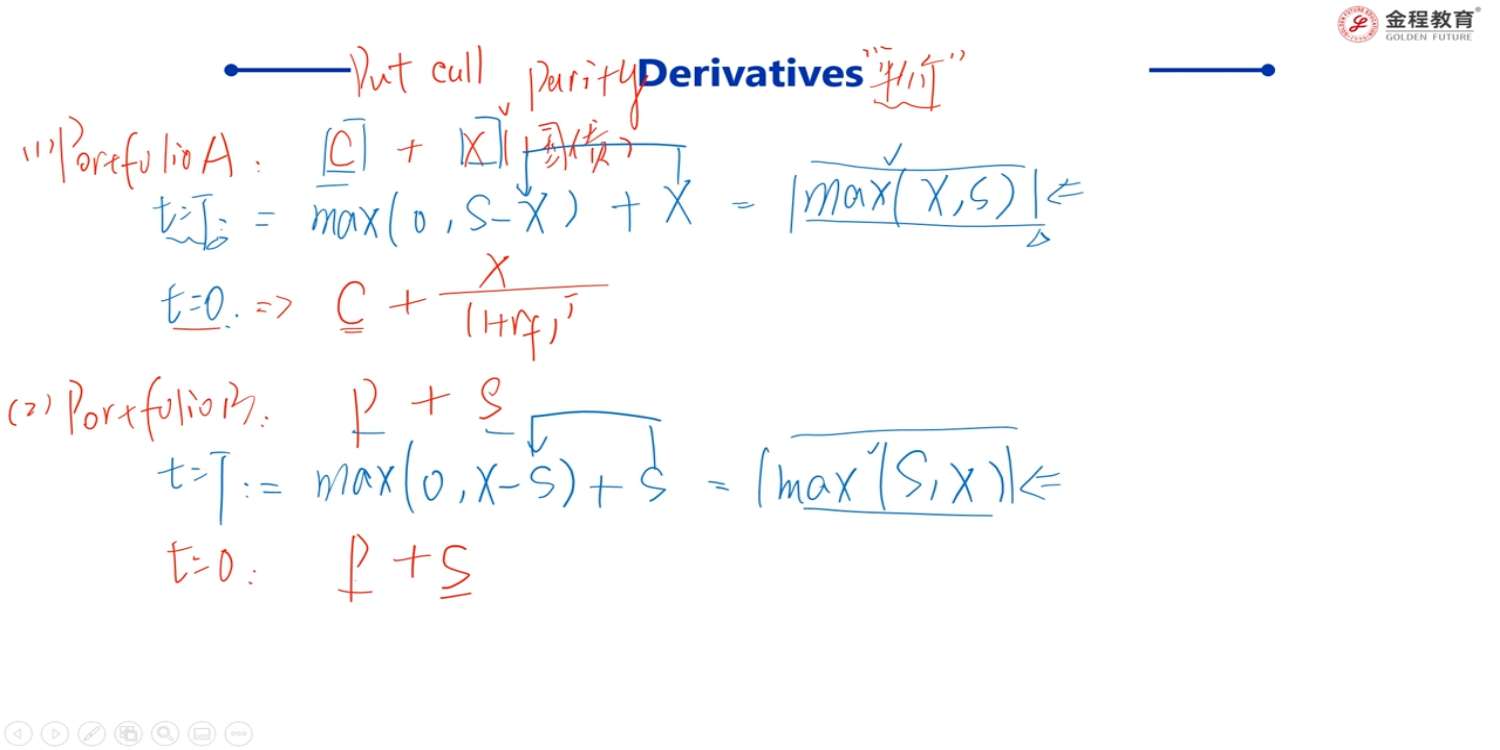 金程教育
GOLDEN FUTURE
Put call parity Derivatives "平价"
(1) Portfolio A: C + X (国债)
t=T: = max(0, S-X) + X = max(X,S) ⇐
t=0: => C + X/(1+rf)^T
(2) Portfolio B: P + S
t=T: = max(0, X-S) + S = max(S,X) ⇐
t=0: P + S